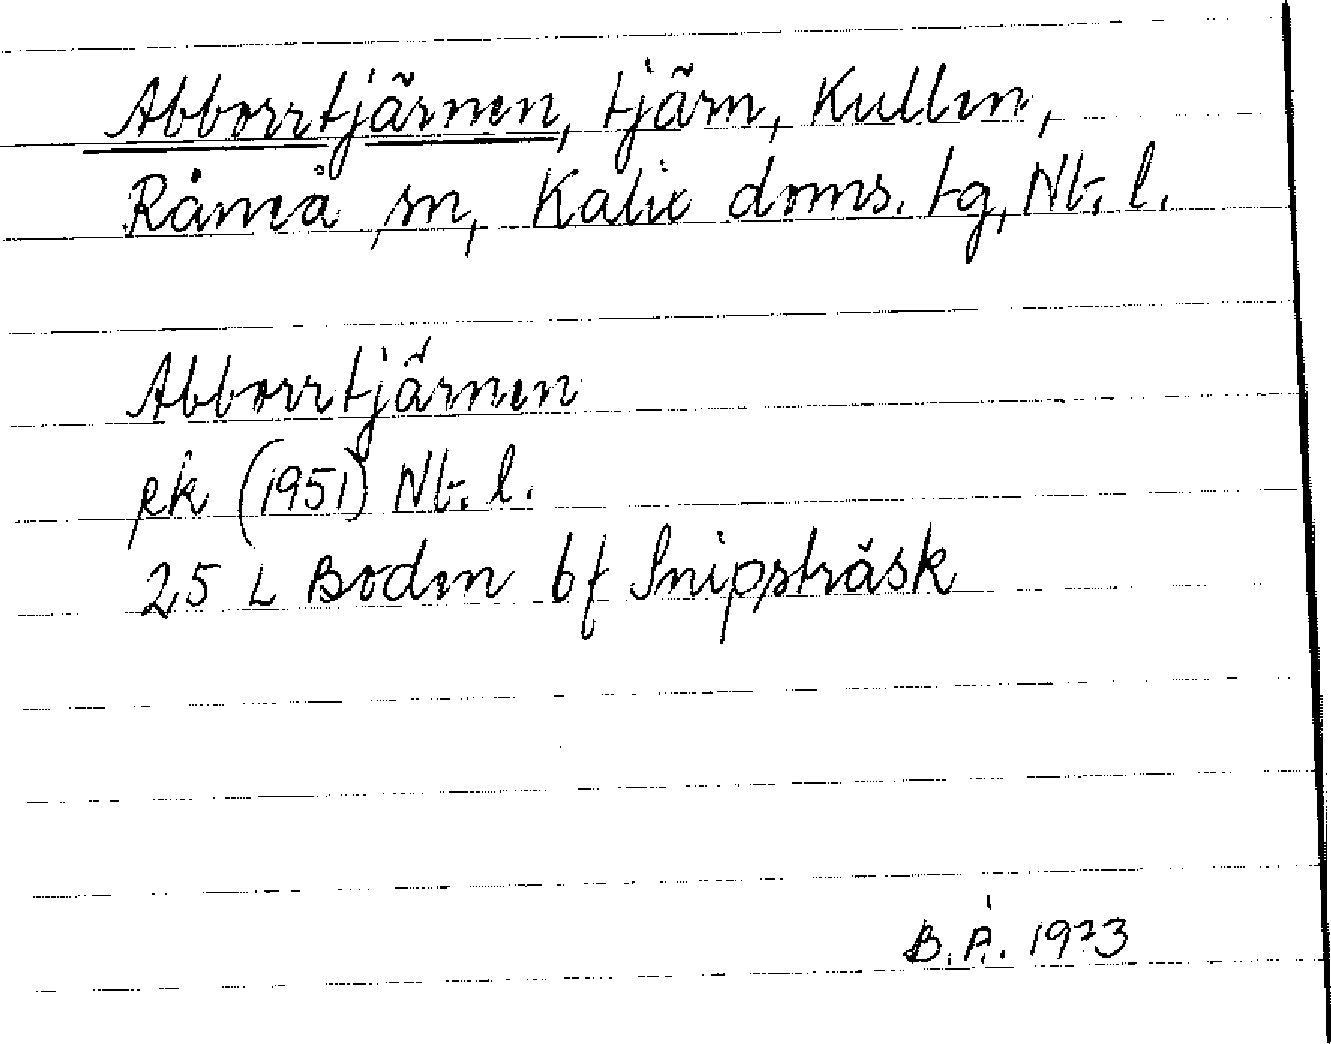 Abborrtjärnen, tjärn, Kullen,
Råneå sn, Kalix doms. tg, Nb. l.
Abborrtjärnen
pk (1951) Nb. l.
25 L Boden bf Snipptråsk
B. Å. 1973